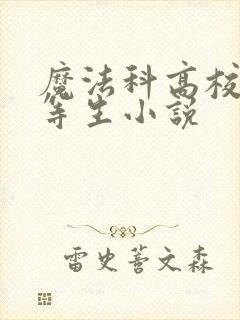 魔法科高校
等生小説
雷史䓍文森